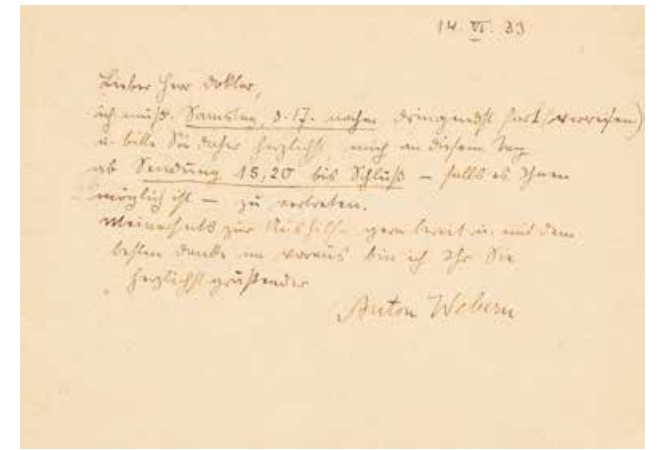 14. VI. 33
Lieber Herr Doktor,
ich muß Samstag, d. 17. nachm. dringendst fort (verreisen)
u. bitte Sie daher herzlichst, mich an diesem Tag
ab Sendung 15,20 bis Schluß — falls es Ihnen
möglich ist — zu vertreten.
Meinerseits zur Aushilfe gern bereit u. mit dem
besten Danke im voraus bin ich Ihr Sie
herzlichst grüßender
Anton Webern